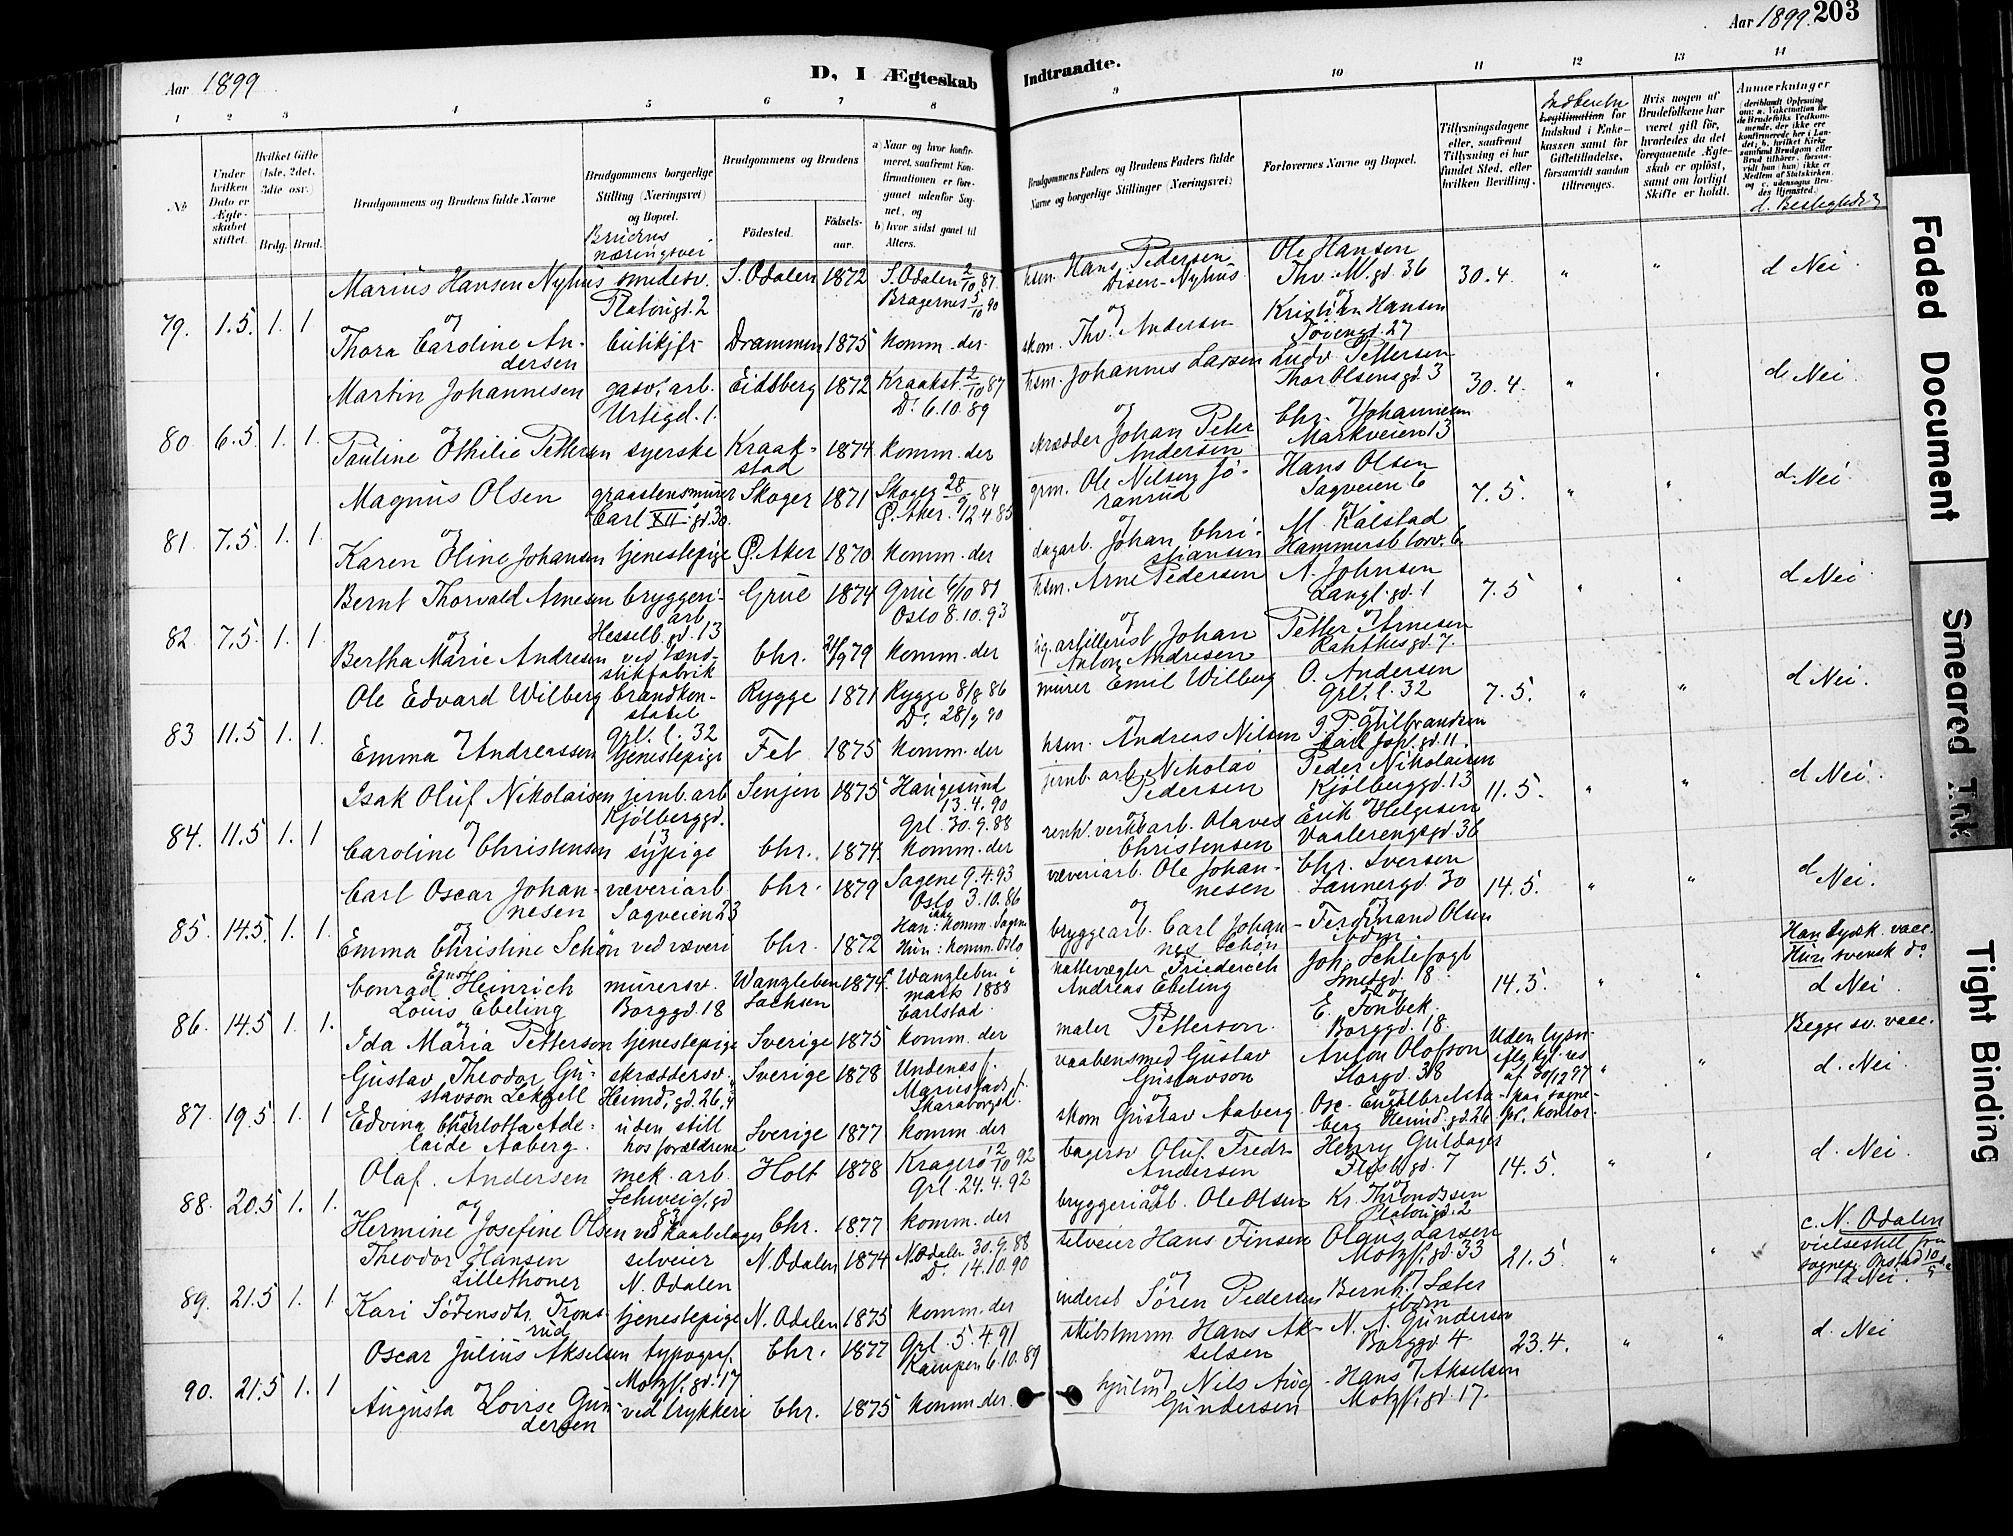 Aar 1899
D, I Ægteskab
Indtraadte.
Aar 1899. 203
1 2 3 4 5 6 7 8
9 10 11 12 13 14
No
Under hvilken Dato er Ægteskabet stiftet.
Hvilket Gifte (1ste, 2det, 3die osv.)
Brdg. Brud.
Brudgommens og Brudens fulde Navne
Brudgommens borgerlige Stilling (Næringsvei) og Bopæl.
Brudens næringsvei
Brudgommens og Brudens
Fødested.
Fødselsaar.
a) Naar og hvor konfirmeret, saafremt Konfirmationen er foregaaet udenfor Sognet, og
b) hvor sidst gaaet til Alters.
Brudgommens Faders og Brudens Faders fulde Navne og borgerlige Stillinger (Næringsvei)
Forlovernes Navne og Bopæl.
Tillysningsdagene eller, saafremt Tillysning ei har fundet Sted, efter hvilken Bevilling.
Legitimation for Indskud i Enkekassen samt for Giftetilladelse, forsaavidt saadan tiltrænges.
Hvis nogen af Brudefolkene har været gift før, hvorledes da det foregaaende Ægteskab er opløst, samt om lovligt Skifte er holdt.
Anmærkninger
d. Beslegtede?
79. 1.5. 1. 1
Marius Hansen Nyhus smedesv. S. Odalen 1872 S. Odalen 2/10 87.
Platougd. 2 Bragernes 5/10 90
og
Thora Caroline Andersen Drammen 1875 komm. der
hsm. Hans Pedersen Disen-Nyhus
og
skom. Thv. Andersen
Ole Hansen
Thv. M. gd. 36
og
Kristian Hansen
Tøiengd. 27
30.4. " " d Nei.
80. 6.5. 1. 1.
Martin Johannesen gasv. arb. Eidsberg 1872 Kraakst. 2/10 87
Urtegd. 1. Do 6.10.89
og
Pauline Othilie Pettersen syerske Kraakstad 1874 komm. der
hsm. Johannes Larsen
og
skrædder Johan Peter Andersen
Ludv. Pettersen
Thor Olsens gd. 3
og
Chr. Johannesen
Markveien 13
30.4. " " d. Nei.
81. 7.5. 1. 1.
Magnus Olsen graastensmurer Skoger 1871 Skoger 28/9 84
Carl XII gd. 30. Ø. Aker
og
Karen Oline Johansen tjenestepige Ø. Aker 1870 komm. der
grm. Ole Nilsen Jøranrud
og
dagarb. Johan Christiansen
Hans Olsen
Sagveien 6
og
M. Kalstad
Hammersb. torv. 6
7.5. " " d Nei.
82. 7.5. 1. 1.
Bernt Thorvald Arnesen bryggeriarb Grue 1874 Grue 6/10 89
Hesselb. gd. 13 Oslo 8.10.93
og
Bertha Marie Andresen ved tændstikfabrik Chr. 21/9 79 komm. der
hsm. Arne Pedersen
og
artillerist Johan Anton Andresen
A. Johnsen
Langl. gd. 1
og
Petter Arnesen
Rahthes gd. 7.
7.5 " " d Nei.
83 11.5 1. 1.
Ole Edvard Wilberg brandkonstabel Rygge 1871 Rygge 8/8 86
Grl. l. 32 Do 28/9 90
og
Emma Andreassen tjenestepige Fet 1875 komm. der
murer Emil Wilberg
og
hsm. Andreas Nilsen
O. Andersen
Grl. l. 32
og
Gulbrandsen
gd. 11.
7.5. " " d Nei.
84. 11.5 1. 1
Isak Oluf Nikolaisen jernb. arb Senjen 1875 Haugesund 13.4.90
Kjølberggd. 13 Grl. 30.9.88
og
Caroline Christensen sypige Chr. 1874. komm. der
jernb. arb. Nikolai Pedersen
og
renh. verksarb. Olaves Christensen
Peder Nikolaisen
Kjølberggd. 13
og
Erik Helgesen
Vaalerengsgd. 36
11.5. " " d Nei.
85. 14.5. 1. 1.
Carl Oscar Johannesen væveriarb Chr. 1879 Sagene 9.4.93
Sagveien 23 Oslo 3.10.86
og
Emma Christine Schøn ved væveri Chr. 1872 Han: ikke komm. Sagene
Hun: komm. Oslo
væveriarb. Ole Johannesen
og
bryggearb. Carl Johannes Schøn
Chr. Iversen
Sannergd. 30
og
Ferdinand Olsen
ibdm.
14.5. " " d Nei.
86. 14.5 1. 1.
Conrad Erno Heinrich Louis Ebeling murersv. Wanzleben Sachsen 1874 Wanzleben i mark 1888
Borggd. 18 Carlstad.
og
Ida Maria Petterson tjenestepige Sverige 1875 komm. der
nattevægter Friederich Andreas Ebeling
og
maler Petterson.
Joh. Schlefogt
Smedgd. 18
og
E. Tonbek.
Borggd. 18.
14.5. " "
Han tysk. vacc.
Hun svensk do
d Nei.
87. 19.5. 1. 1
Gustav Theodor Gustavson Lekzell skræddersv. Sverige 1878 Undenæs f.
Heimd. gd. 26, 4 Mariestads f. Skaraborgs l.
og
Edvina Charlotta Adelaide Aaberg. uden still hos forældrene Sverige 1877 komm. der
vaabensmed Gustav Gustavson
og
skom Gustav Aaberg.
Anton Olofson
Storgd. 38
og
Osc. Engelbrektsberg Heimd. gd. 26
Uden lysn. iflg kgl. res af 30/12 97 paa sognepr. kontor.
" "
Begge sv. vacc.
d. Nei.
88. 20.5 1. 1.
Olaf. Andersen mek. arb. Holt 1878 Kragerø 2/10 92
Schweig. gd 83 Grl. 24.4.92
og
Hermine Josefine Olsen ved kaabelager Chr. 1877 komm. der
bagersv Oluf Fredr. Andersen
og
bryggeriarb. Ole Olsen
Henry Guldager
Flisbgd. 7
og
Kr. Throndssen
Platougd. 2
14.5. " " d. Nei.
89. 21.5 1. 1
Theodor Hansen Lillethoner selveier N. Odalen 1874 N. Odalen 30.9.88
N. Odalen Do. 14.10.90
og
Kari Sørensdtr. Tronsrud tjenestepige N. Odalen 1875 komm. der
selveier Hans Finsen
og
inderst Søren Pedersen
Olaus Larsen
Motzf. gd. 33
og
Bernh. Sæter
ibdm
21.5. " "
c. N. Odalen
vielsestill fra sognepr. Opstad 10/5
d Nei.
90. 21.5 1. 1
Oscar Julius Akselsen typograf. Chr. 1877 Grl. 5.4.91
Motzf. gd. 17 Kampen 6.10.89
og
Augusta Lovise Gundersen ved trykkeri Chr. 1875 komm. der.
skibstmrm. Hans Akselsen
og
hjulm. Nils Aug. Gundersen
N. A. Gundersen
Borggd. 4
og
Hans Akselsen
Motzf. gd. 17.
23.4. " " d. Nei
Faded Document
Smeared Ink
Tight Binding